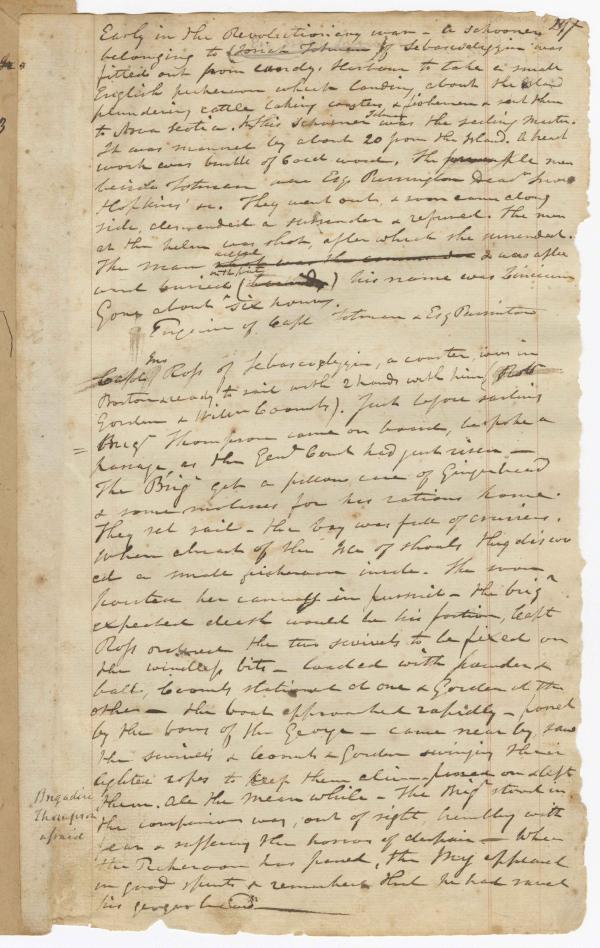 Early in the Revolutionary war - a schooner
belonging to Josiah Totman of Sebascodeggin was
fitted out from Candy's Harbour to take a small
English picheroon which landing about the Island
plundering cattle taking coasters, & fishermen & sent them
to Nova Scotia. In this Schooner Totman was the sailing Master.
It was manned by about 20 from the Island. A breast
work was built of Cord wood. The men
beside Totman, were Esq Purrington Deac
Hopkins &c. They went out, & soon came along
side, demanded a surrender & refused. The man
at the helm was shot, after which she surrendered.
The man & was after
ward buried his name was
Gove about six hours.
Enquire of Capt Totman & Esq Purrinton
Capt Ross of Sebascodeggin, a coaster, was in
Boston & ready to sail with 2 hands with him
Gordon & Coombs). Just before sailing
Brig Thompson came on board, bespoke a
passage, as the Genl Court had just risen -
The Brig get a pillow case of Gingerbread
& some molasses for his rations home.
They set sail - the bay was full of cruisers.
When abreast of the Isle of Shoals they discov
ed a small picheroon inside. She soon
hoisted her canvass in pursuit - the brigr
expected death would be his portion, Capt
Ross ordered the two swivels to be fixed on
the windless bits - loaded with powder &
ball, Coombs stationed at one & Gordon at the
other - the boat approached rapidly - passed
by the bows of the George - came near by, saw
the swivels & Coombs & Gordon swinging their
lighted ropes to keep them alive - passed on & left
them. All the mean while - the Brigr stood in
the companion way, out of sight, trembling with
fear & suffering the horrors of despair - When
the Picheroon had passed, the Brig appeared
in good spirits & remarked that he had saved
his gingerbread
Brigadier
Thompson
afraid